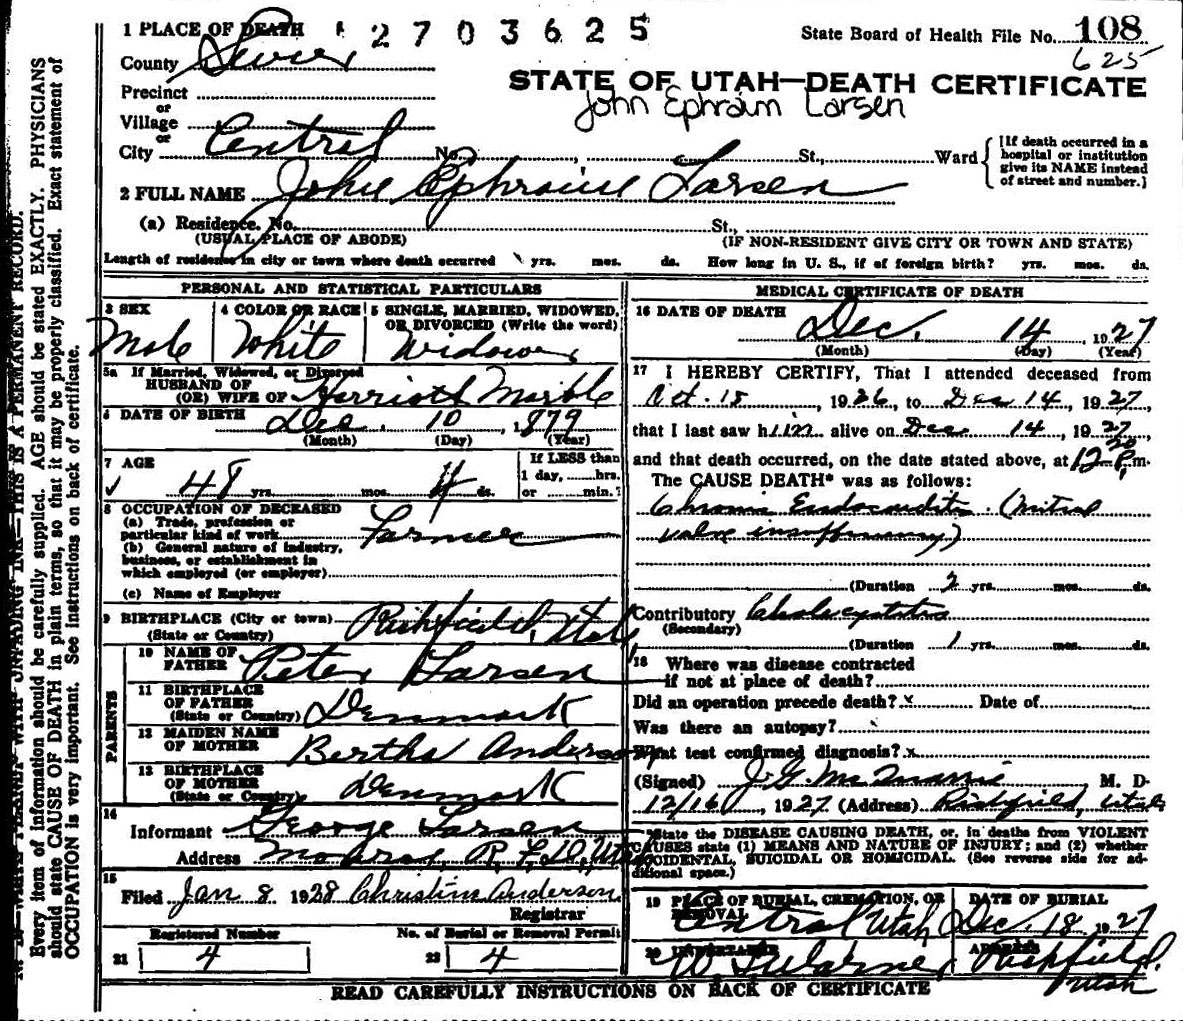 1 PLACE OF DEATH 2703625 State Board of Health File No. 108
County Sevier 625
STATE OF UTAH—DEATH CERTIFICATE
Precinct
or
John Ephraim Larsen
Village
or
City Central No. St., Ward
[If death occurred in a hospital or institution give its NAME instead of street and number.]
2 FULL NAME John Ephraim Larsen
(a) Residence. No. St.,
(USUAL PLACE OF ABODE) (IF NON-RESIDENT GIVE CITY OR TOWN AND STATE)
Length of residence in city or town where death occurred yrs. mos. ds. How long in U. S., if of foreign birth? yrs. mos. ds.
PERSONAL AND STATISTICAL PARTICULARS
3 SEX 4 COLOR OR RACE 5 SINGLE, MARRIED, WIDOWED,
OR DIVORCED (Write the word)
Male White Widower
5a If Married, Widowed, or Divorced
HUSBAND OF
(OR) WIFE OF Harriott Marble
6 DATE OF BIRTH Dec. 10, 1879
(Month) (Day) (Year)
7 AGE If LESS than
1 day, hrs.
48 yrs. mos. 4 ds. or min.?
8 OCCUPATION OF DECEASED
(a) Trade, profession or
particular kind of work Farmer
(b) General nature of industry,
business, or establishment in
which employed (or employer)
(c) Name of Employer
9 BIRTHPLACE (City or town) Richfield, Utah
(State or Country)
PARENTS
10 NAME OF
FATHER Peter Larsen
11 BIRTHPLACE
OF FATHER
(State or Country) Denmark
12 MAIDEN NAME
OF MOTHER Bertha Anderson
13 BIRTHPLACE
OF MOTHER
(State or Country) Denmark
14
Informant George Larsen
Address Monroe, R.F.D., Utah
15
Filed Jan 8 1928 Christina Anderson
Registrar
Registered Number No. of Burial or Removal Permit
21 4 22 4
MEDICAL CERTIFICATE OF DEATH
16 DATE OF DEATH
Dec. 14, 1927
(Month) (Day) (Year)
17 I HEREBY CERTIFY, That I attended deceased from
Oct. 18, 1926, to Dec 14, 1927,
that I last saw him alive on Dec 14, 1927,
and that death occurred, on the date stated above, at 12 20 P.m.
The CAUSE DEATH* was as follows:
Chronic Endocarditis (Mitral
valve insufficiency)
(Duration 2 yrs. mos. ds.
Contributory Cholecystitis
(Secondary)
(Duration 1 yrs. mos. ds.
18 Where was disease contracted
if not at place of death?
Did an operation precede death? x Date of
Was there an autopsy?
What test confirmed diagnosis? x
(Signed) J.G. McQuarrie M. D.
12/16, 1927 (Address) Richfield, Utah
*State the DISEASE CAUSING DEATH, or, in deaths from VIOLENT
CAUSES state (1) MEANS AND NATURE OF INJURY; and (2) whether
ACCIDENTAL, SUICIDAL OR HOMICIDAL. (See reverse side for ad-
ditional space.)
19 PLACE OF BURIAL, CREMATION, OR REMOVAL DATE OF BURIAL
Central Utah Dec. 18 1927
20 UNDERTAKER ADDRESS
Richfield,
Utah
READ CAREFULLY INSTRUCTIONS ON BACK OF CERTIFICATE
N. B.—WRITE PLAINLY WITH UNFADING INK—THIS IS A PERMANENT RECORD.
Every item of information should be carefully supplied. AGE should be stated EXACTLY. PHYSICIANS
should state CAUSE OF DEATH in plain terms, so that it may be properly classified. Exact statement of
OCCUPATION is very important. See instructions on back of certificate.